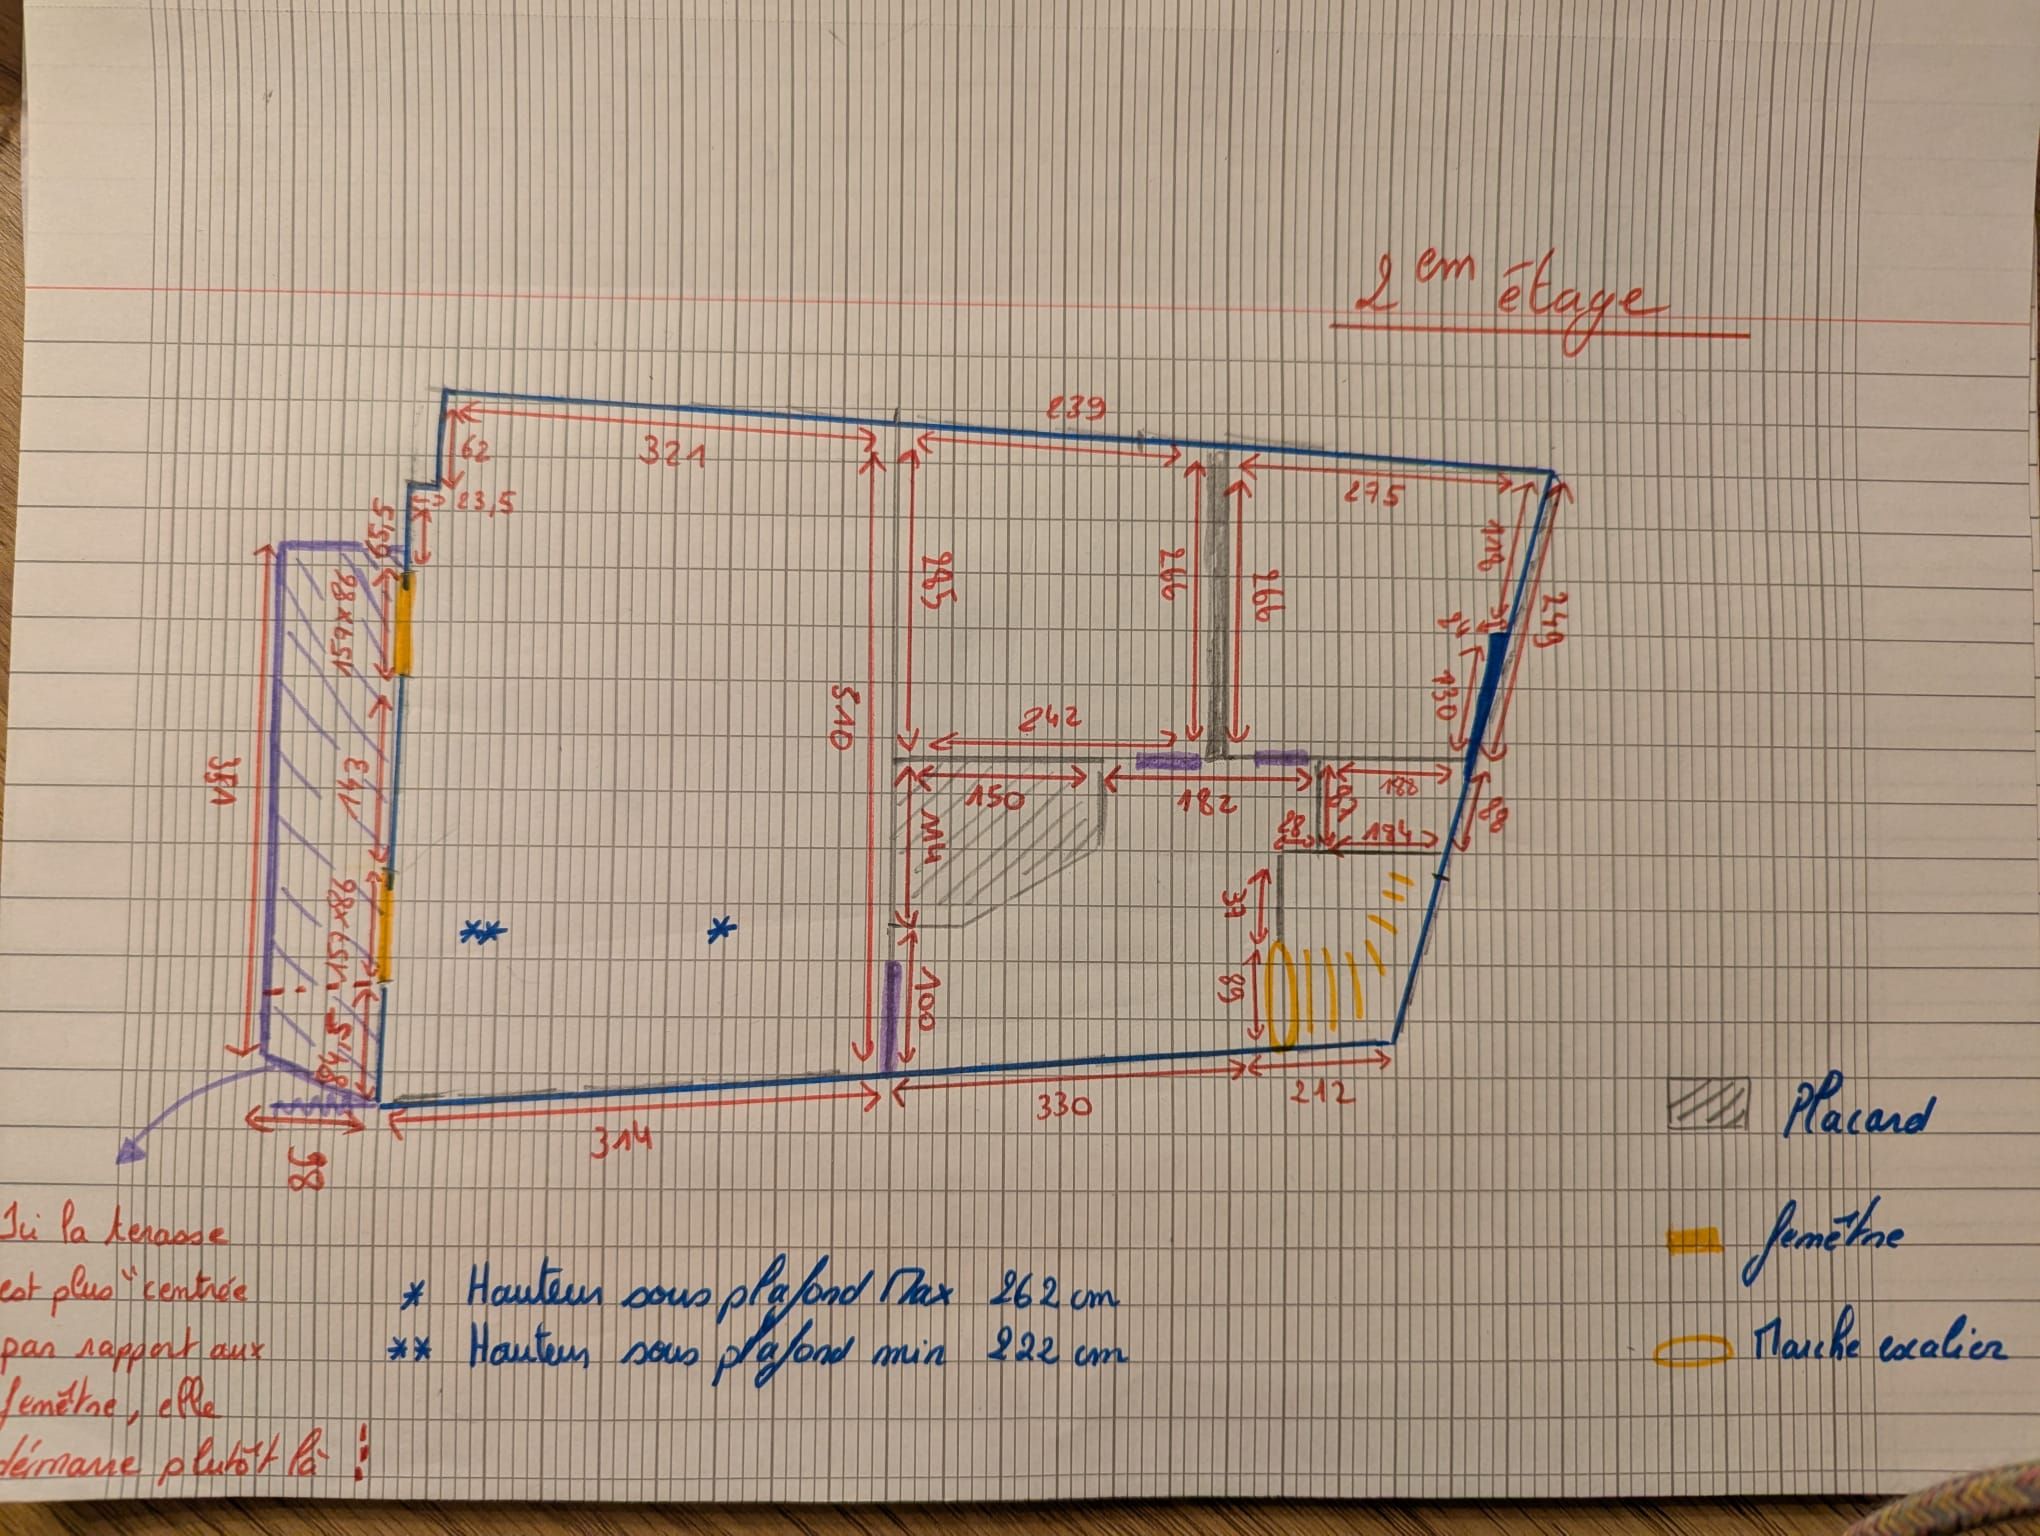 2em étage
239
321
62
23,5
275
65,5
118
249
159x86
265
266
266
14
130
510
242
351
143
150
182
188
88
114
28
184
159x86
37
100
89
84,5
330
212
314
98
Placard
Ici la terasse
est plus "centrée
par rapport aux
fenêtre, elle
démarre plutôt là
fenêtre
* Hauteur sous plafond Max 262 cm
** Hauteur sous plafond min 222 cm
Marche escalier